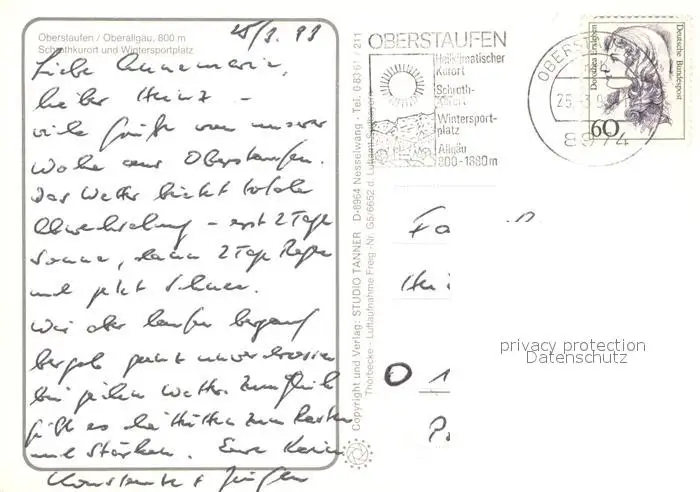 Oberstaufen / Oberallgäu, 800 m
Schrothkurort und Wintersportplatz
25/3. 93
Liebe Annemarie,
lieber Heinz -
viele Grüße von unserer
Woche aus Oberstaufen.
Das Wetter bietet totale
Abwechslung - erst 2 Tage
Sonne, dann 2 Tage Regen
und jetzt Schnee.
Wir aber laufen bergauf
bergab ganz unverdrossen
bei jedem Wetter. Zum Glück
gibt es die Hütten zum Rasten
und Stärken. Eure Karin
Konstantin + Jürgen
Copyright und Verlag: STUDIO TANNER D-8964 Nesselwang - Tel. 0 83 61 / 211
Thorbecke - Luftaufnahme Freig.-Nr. G5/6652 d. Luftamt
OBERSTAUFEN
Heilklimatischer
Kurort
Schroth-
kurort
Wintersport-
platz
Allgäu
800-1880m
OBERST
25.-3.9
8974
Deutsche Bundespost
Dorothea Erxleben
60
Fa
Hei
1
privacy protection
Datenschutz